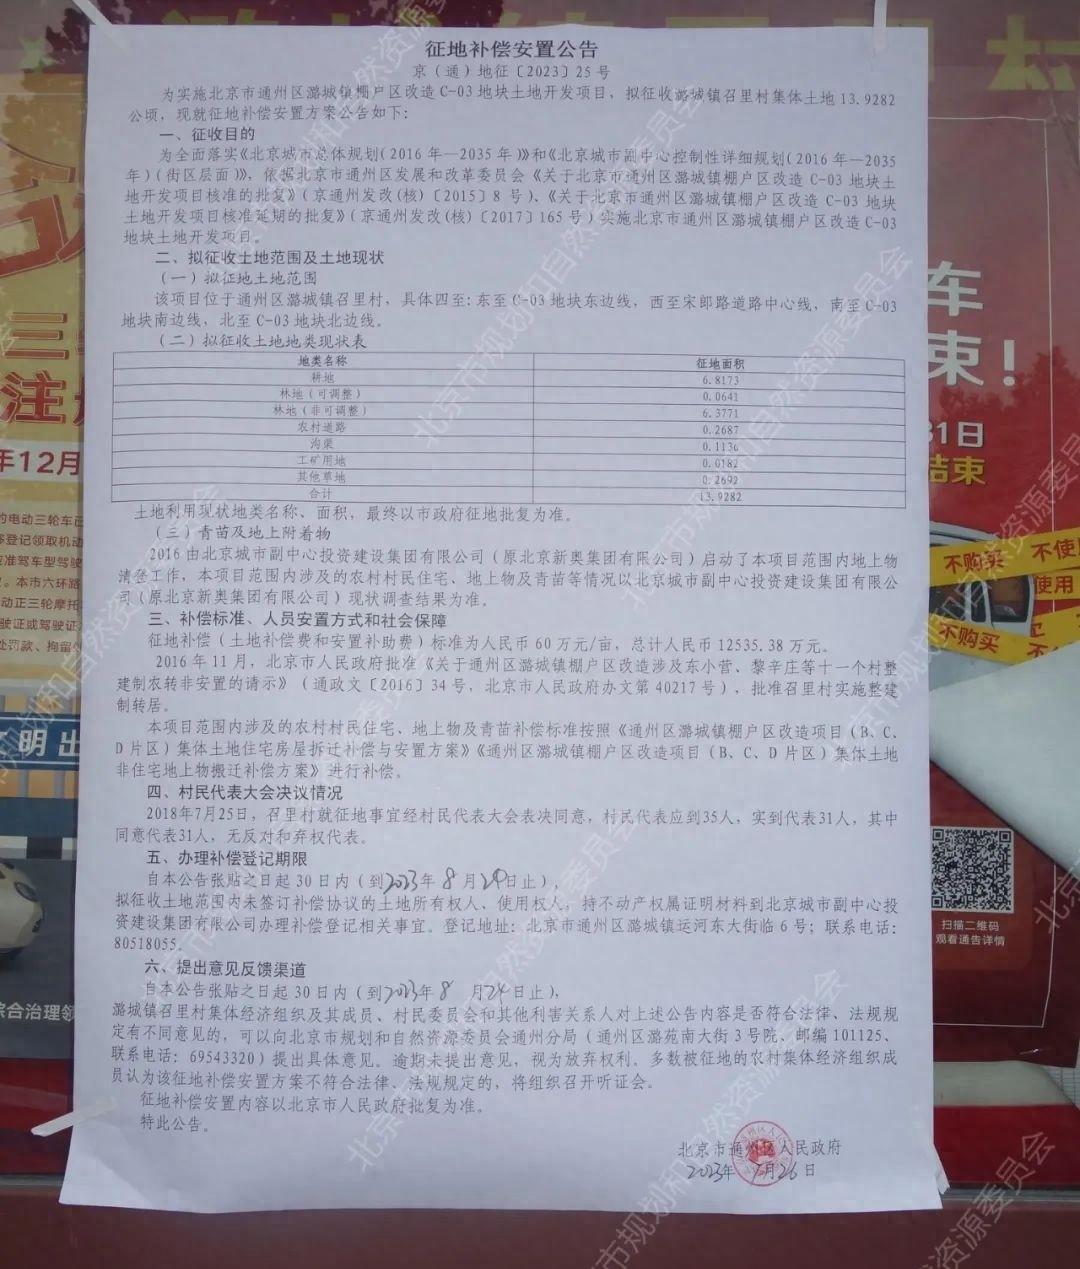 征地补偿安置公告
京（通）地征〔2023〕25号
为实施北京市通州区潞城镇棚户区改造C-03地块土地开发项目，拟征收潞城镇召里村集体土地13.9282
公顷，现就征地补偿安置方案公告如下：
一、征收目的
为全面落实《北京城市总体规划(2016年—2035年)》和《北京城市副中心控制性详细规划(2016年—2035
年)(街区层面)》，依据北京市通州区发展和改革委员会《关于北京市通州区潞城镇棚户区改造C-03地块土
地开发项目核准的批复》(京通州发改(核)〔2015〕8号)、《关于北京市通州区潞城镇棚户区改造C-03地块
土地开发项目核准延期的批复》(京通州发改(核)〔2017〕165号)实施北京市通州区潞城镇棚户区改造C-03
地块土地开发项目。
二、拟征收土地范围及土地现状
（一）拟征地土地范围
该项目位于通州区潞城镇召里村，具体四至：东至C-03地块东边线，西至宋郎路道路中心线，南至C-03
地块南边线，北至C-03地块北边线。
（二）拟征收土地地类现状表
地类名称 征地面积
耕地 6.8173
林地（可调整） 0.0641
林地（非可调整） 6.3771
农村道路 0.2687
沟渠 0.1136
工矿用地 0.0182
其他草地 0.2692
合计 13.9282
土地利用现状地类名称、面积，最终以市政府征地批复为准。
（三）青苗及地上附着物
2016由北京城市副中心投资建设集团有限公司（原北京新奥集团有限公司）启动了本项目范围内地上物
清登工作，本项目范围内涉及的农村村民住宅、地上物及青苗等情况以北京城市副中心投资建设集团有限公
司（原北京新奥集团有限公司）现状调查结果为准。
三、补偿标准、人员安置方式和社会保障
征地补偿（土地补偿费和安置补助费）标准为人民币60万元/亩，总计人民币12535.38万元。
2016年11月，北京市人民政府批准《关于通州区潞城镇棚户区改造涉及东小营、黎辛庄等十一个村整
建制农转非安置的请示》（通政文〔2016〕34号，北京市人民政府办文第40217号），批准召里村实施整建
制转居。
本项目范围内涉及的农村村民住宅、地上物及青苗补偿标准按照《通州区潞城镇棚户区改造项目（B、C、
D片区）集体土地住宅房屋拆迁补偿与安置方案》《通州区潞城镇棚户区改造项目（B、C、D片区）集体土地
非住宅地上物搬迁补偿方案》进行补偿。
四、村民代表大会决议情况
2018年7月25日，召里村就征地事宜经村民代表大会表决同意，村民代表应到35人，实到代表31人，其中
同意代表31人，无反对和弃权代表。
五、办理补偿登记期限
自本公告张贴之日起30日内（到2023年8月24日止），
拟征收土地范围内未签订补偿协议的土地所有权人、使用权人，持不动产权属证明材料到北京城市副中心投
资建设集团有限公司办理补偿登记相关事宜。登记地址：北京市通州区潞城镇运河东大街临6号；联系电话：
80518055。
六、提出意见反馈渠道
自本公告张贴之日起30日内（到2023年8月24日止），
潞城镇召里村集体经济组织及其成员、村民委员会和其他利害关系人对上述公告内容是否符合法律、法规规
定有不同意见的，可以向北京市规划和自然资源委员会通州分局（通州区潞苑南大街3号院、邮编101125、
联系电话：69543320）提出具体意见。逾期未提出意见，视为放弃权利。多数被征地的农村集体经济组织成
员认为该征地补偿安置方案不符合法律、法规规定的，将组织召开听证会。
征地补偿安置内容以北京市人民政府批复为准。
特此公告。
北京市通州区人民政府
2023年7月26日
村
车
束！
31日
结束
不购买
不使
使用
不购买
扫描二维码
观看通告详情
三
注
年12月
的电动三轮车已
等登记领取机动
准驾车型驾驶
。本市六环路
动正三轮摩托
驶证或驾驶证
处罚款、拘留
明出
综合治理领
北京市规划和自然资源委员会